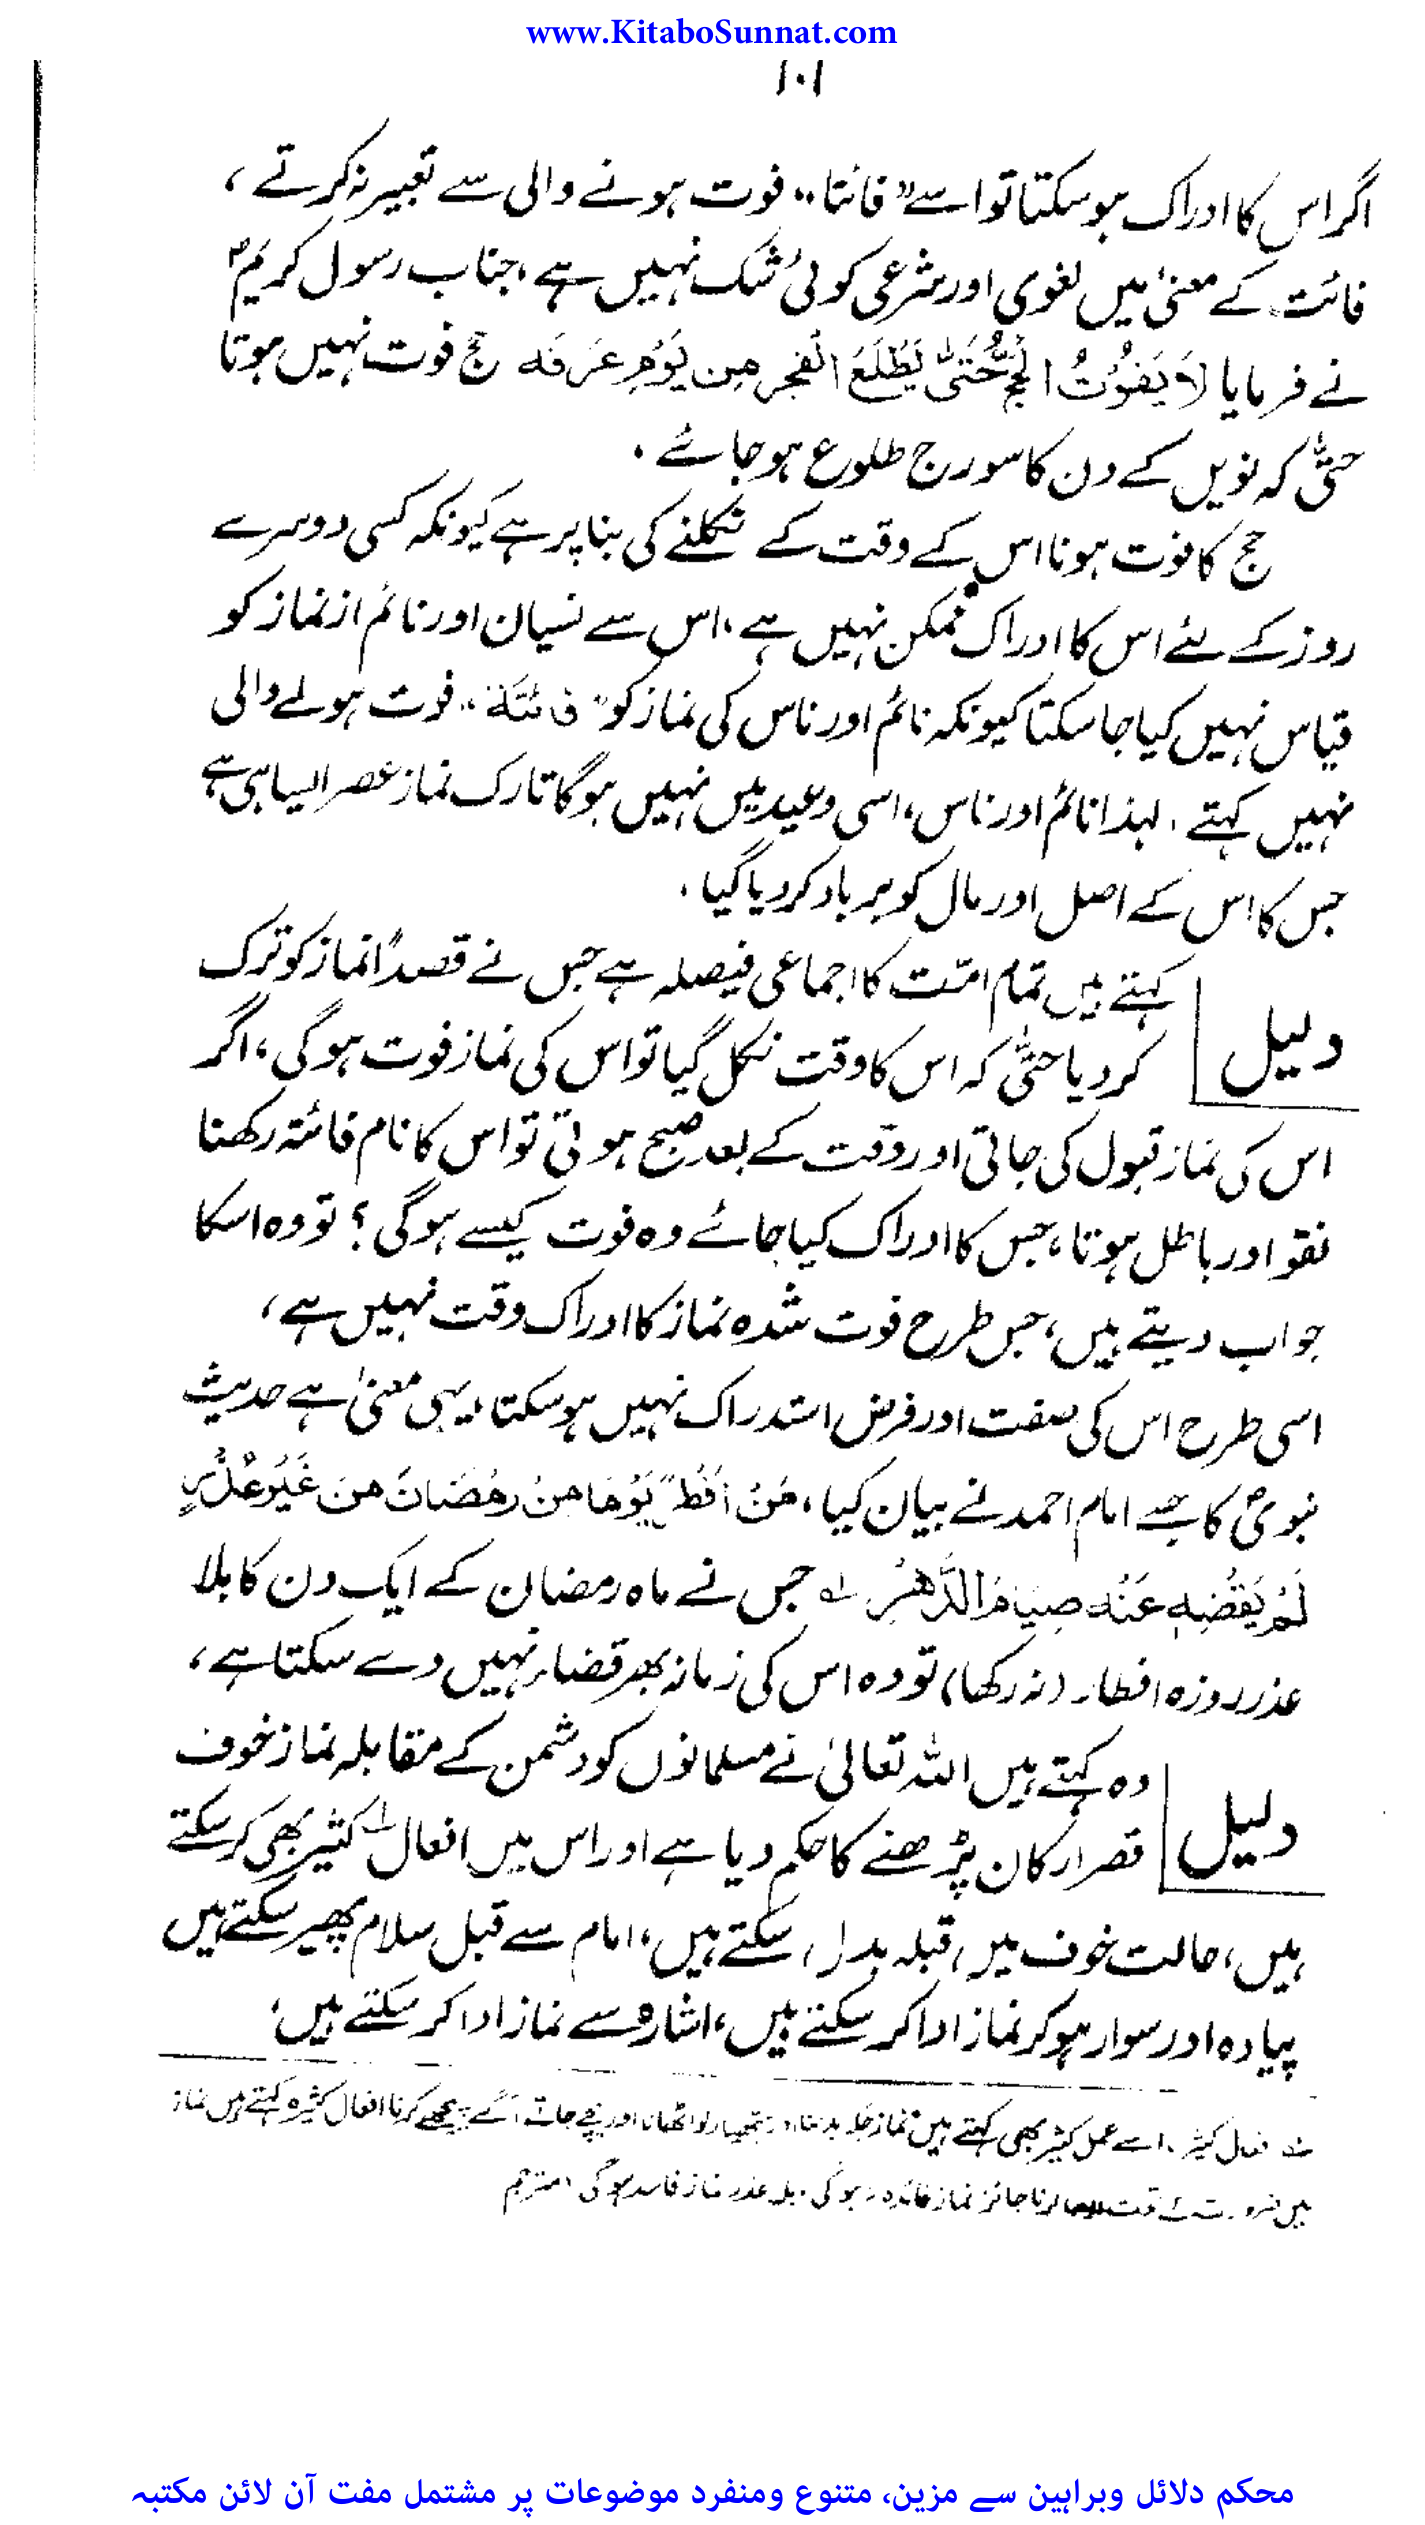 www.KitaboSunnat.com
۱۰۱
اگر اس کا ادراک ہو سکتا تو اسے "فائتا" فوت ہونے والی سے تعبیر نہ کرتے ،
فائت کے معنیٰ میں لغوی اور شرعی کوئی شک نہیں ہے ، جناب رسول کریم ؐ
نے فرمایا لَا يَفُوْتُ الْحَجُّ حَتّٰى يَطْلَعَ الْفَجر مِن يَوْمِ عَرَفَه حج فوت نہیں ہوتا
حتّٰی کہ نویں کے دن کا سورج طلوع ہو جائے .
حج کا فوت ہونا اس کے وقت کے نکلنے کی بنا پر ہے کیونکہ کسی دوسرے
روز کے لئے اس کا ادراک ممکن نہیں ہے ، اس سے نسیان اور نائم از نماز کو
قیاس نہیں کیا جا سکتا کیونکہ نائم اور ناس کی نماز کو " فائتة " فوت ہولے والی
نہیں کہتے . لہذا نائم اور ناس ، اسی وعید میں نہیں ہوگا تارک نماز عصر ایسا ہی ہے
جس کا اس کے اصل اور مال کو برباد کر دیا گیا .
کہتے ہیں تمام امّت کا اجماعی فیصلہ ہے جس نے قصداً نماز کو ترک
دلیل
کر دیا حتّٰی کہ اس کا وقت نکل گیا تو اس کی نماز فوت ہوگی ، اگر
اس کی نماز قبول کی جاتی اور وقت کے بعد صبح ہوتی تو اس کا نام فائتہ رکھنا
نقو اور باطل ہوتا ، جس کا ادراک کیا جائے وہ فوت کیسے ہوگی ؟ تو وہ اسکا
جواب دیتے ہیں ، جس طرح فوت شدہ نماز کا ادراک وقت نہیں ہے ،
اسی طرح اس کی صفت اور فرض استدراک نہیں ہو سکتا ، یہی معنیٰ ہے حدیث
نبویؐ کا جسے امام احمد نے بیان کیا ، مَنْ اَفْطَرَ يَوْمًا مِنْ رَمَضَانَ مِنَ غَيْرِ عُذْرٍ
لَمْ يَقْضِهِ عَنْهُ صِيَامُ الدَّهْرِ لہ جس نے ماہ رمضان کے ایک دن کا بلا
عذر روزہ افطار (نہ رکھا) تو وہ اس کی زمانہ بھر قضاء نہیں دے سکتا ہے ،
وہ کہتے ہیں اللہ تعالیٰ نے مسلمانوں کو دشمن کے مقابلہ نماز خوف
دلیل
قصر ارکان پڑھنے کا حکم دیا ہے اور اس میں افعال لہ کثیر بھی کر سکتے
ہیں ، حالت خوف میں قبلہ بدل سکتے ہیں ، امام سے قبل سلام پھیر سکتے ہیں
پیادہ اور سوار ہو کر نماز ادا کر سکتے ہیں ، اشارہ سے نماز ادا کر سکتے ہیں ،
فعال کثیر . اسے عمل کثیر بھی کہتے ہیں نماز اور نیچے جاتے ، آگے پیچھے کرنا افعال کثیرہ کہتے ہیں نماز
میں جائز نماز ہو گی . بلا عذر نماز فاسد ہو گی ، مترجم
محکم دلائل وبراہین سے مزین، متنوع ومنفرد موضوعات پر مشتمل مفت آن لائن مکتبہ